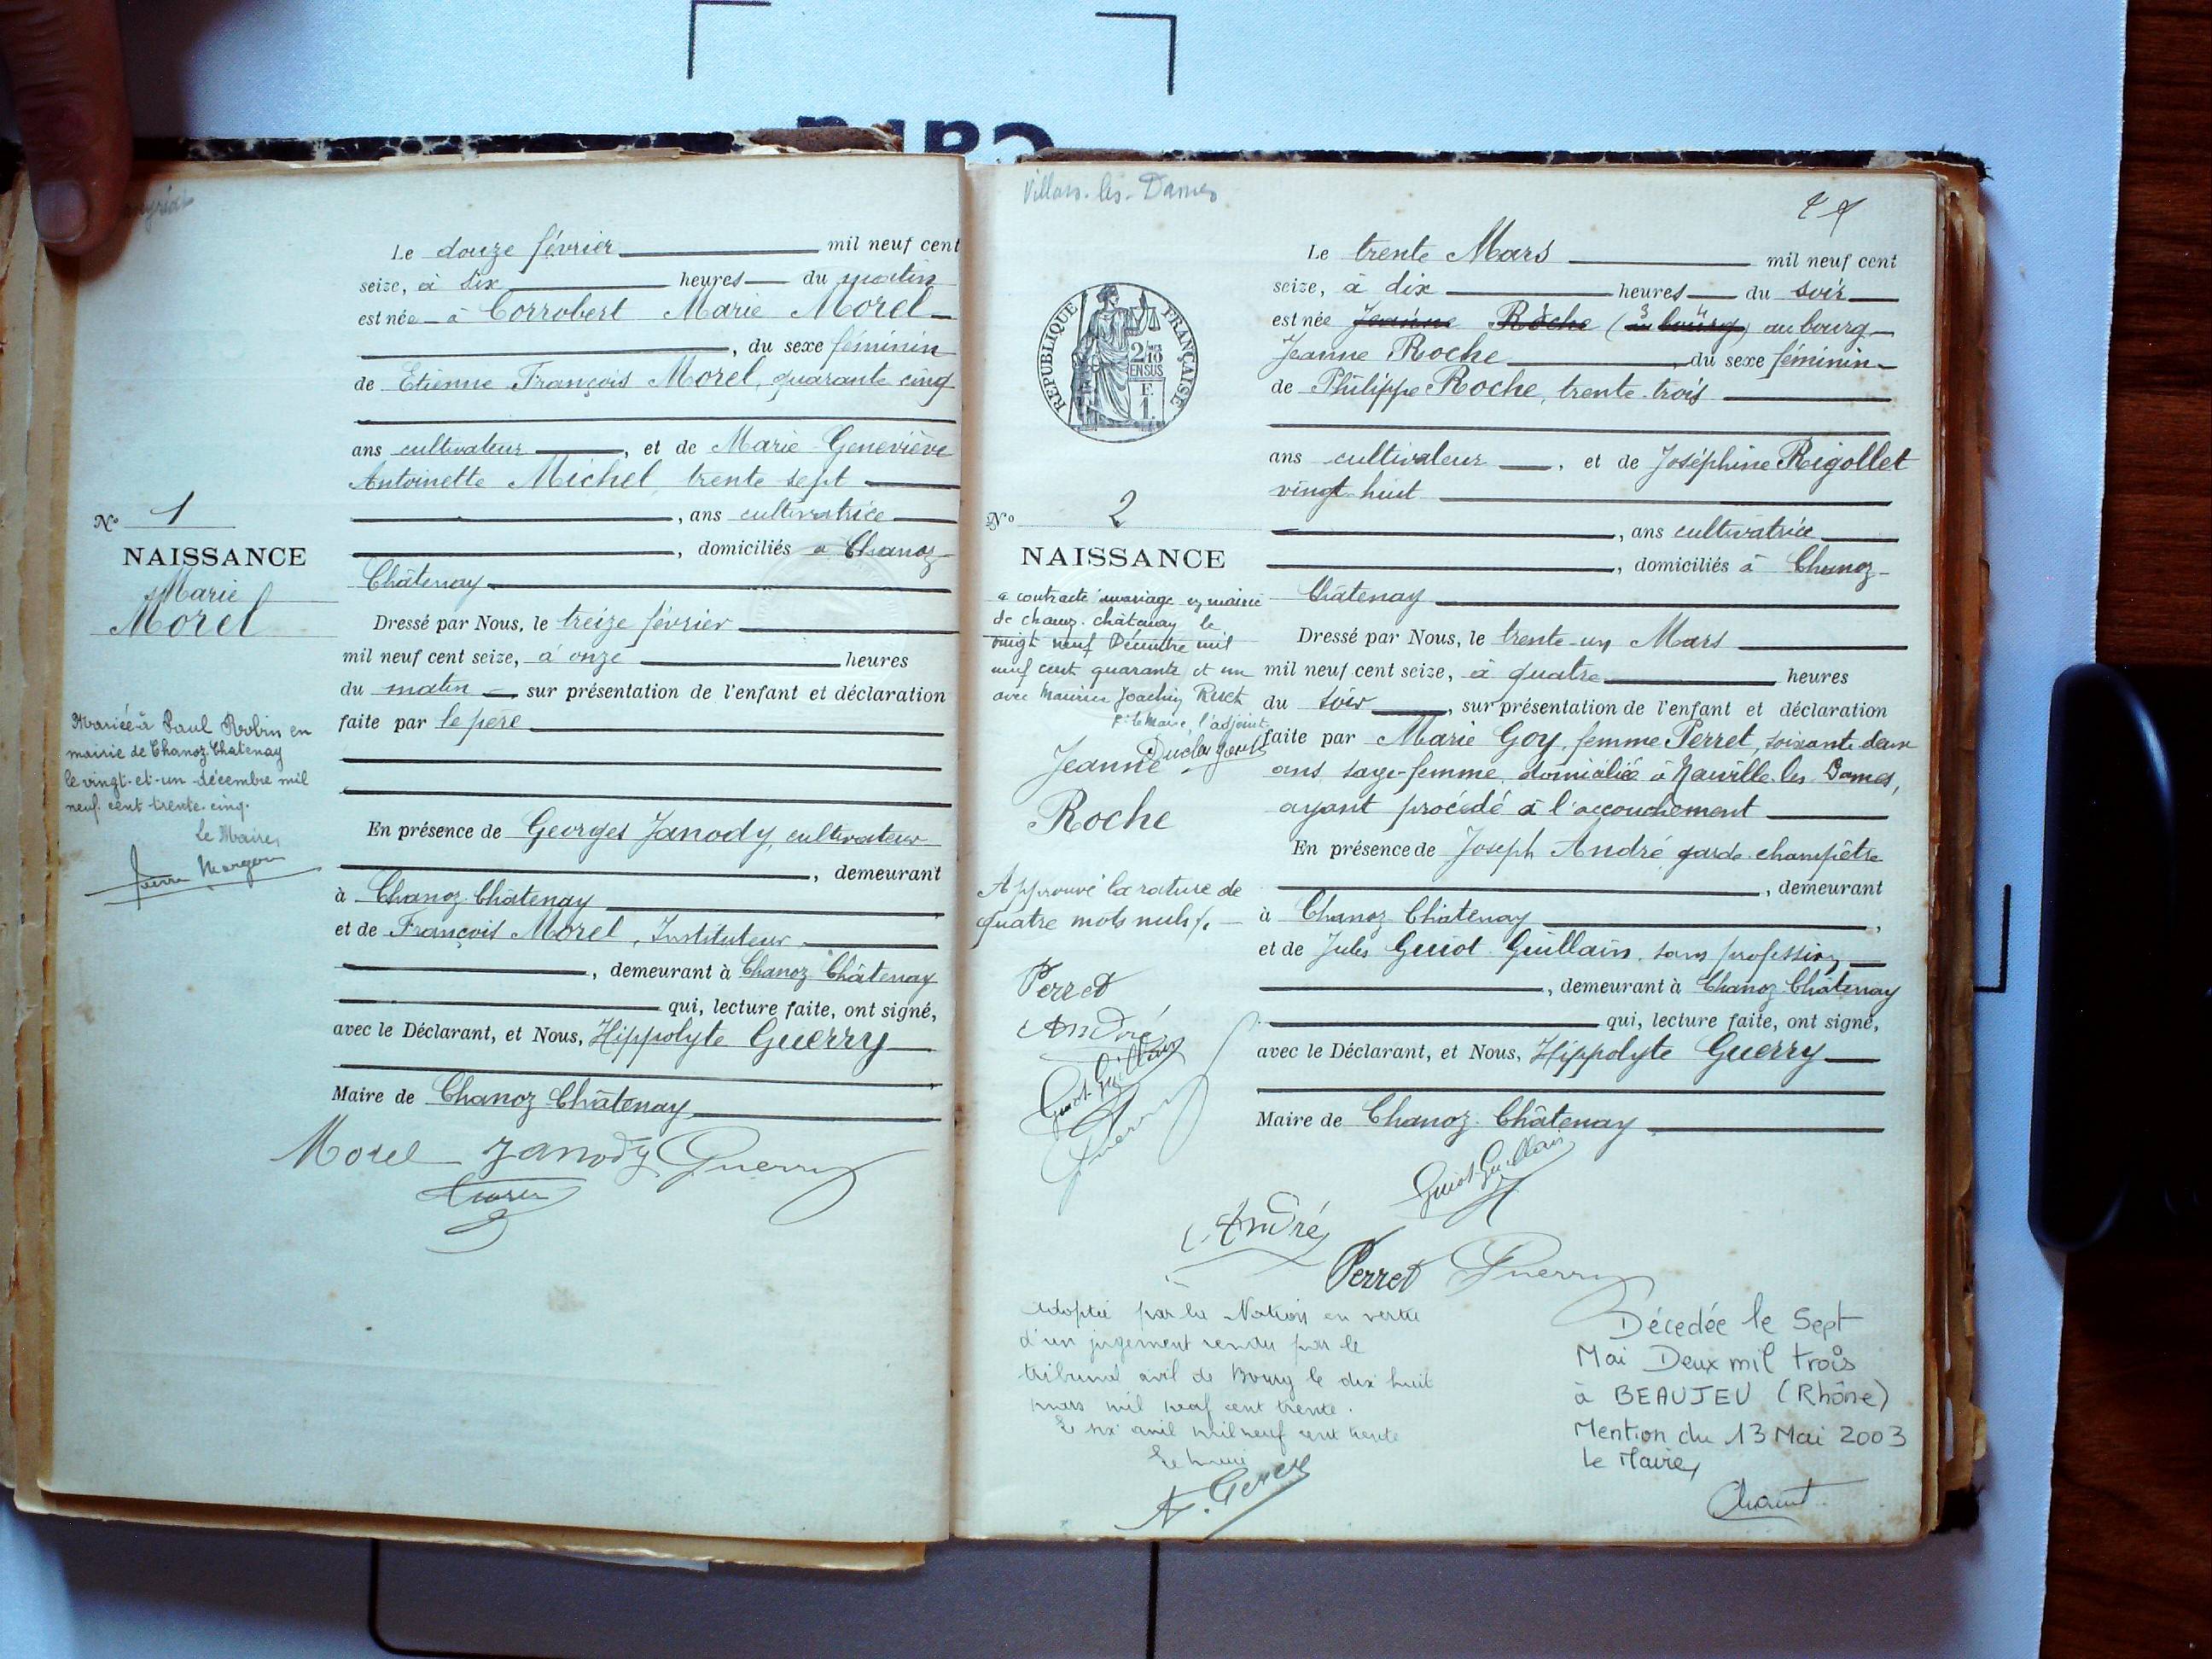 Le douze février mil neuf cent
seize, à six heures du matin
est née à Corrobert Marie Morel
, du sexe féminin
de Etienne François Morel, quarante cinq
ans cultivateur, et de Marie Geneviève
Antoinette Michel, trente sept
, ans cultivatrice
, domiciliés à Chanoz
Châtenay
Dressé par Nous, le treize février
mil neuf cent seize, à onze heures
du matin sur présentation de l'enfant et déclaration
faite par le père
En présence de Georges Janody, cultivateur
, demeurant
à Chanoz-Châtenay
et de François Morel, Instituteur
, demeurant à Chanoz Châtenay
qui, lecture faite, ont signé,
avec le Déclarant, et Nous, Hippolyte Guerry
Maire de Chanoz Châtenay
Morel Janody Guerry
Morel
N° 1
NAISSANCE
Marie
Morel
Mariée à Paul Robin en
mairie de Chanoz-Chatenay
le vingt-et-un décembre mil
neuf cent trente-cinq.
Le Maire,
Villars-les-Dames
RÉPUBLIQUE FRANÇAISE
2/10
EN SUS
F.
1.
Le trente Mars mil neuf cent
seize, à dix heures du soir
est née Jeanne Roche (au bourg) au bourg
Jeanne Roche, du sexe féminin
de Philippe Roche, trente-trois
ans cultivateur, et de Joséphine Rigollet
vingt-huit
, ans cultivatrice
, domiciliés à Chanoz-
Châtenay
Dressé par Nous, le trente-un Mars
mil neuf cent seize, à quatre heures
du soir, sur présentation de l'enfant et déclaration
faite par Marie Goy, femme Perret, soixante deux
ans, sage-femme, domiciliée à Neuville-les-Dames,
ayant procédé à l'accouchement
En présence de Joseph André garde-champêtre
, demeurant
à Chanoz Châtenay,
et de Jules Guiot-Guillain, sans profession
, demeurant à Chanoz Châtenay
qui, lecture faite, ont signé,
avec le Déclarant, et Nous, Hippolyte Guerry
Maire de Chanoz-Châtenay
Guiot-Guillain
André
Perret Guerry
N° 2
NAISSANCE
a contracté mariage en mairie
de chanoz-châtenay le
vingt neuf Décembre mil
neuf cent quarante et un
avec Maurice Joachim
P. le Maire, l'adjoint
Jeanne
Roche
Approuvé la rature de
quatre mots nuls.
Perret
André
Guiot-Guillain
Guerry
Adoptée par la Nation en vertu
d'un jugement rendu par le
tribunal civil de Bourg le dix huit
mars mil neuf cent trente.
Le six avril mil neuf cent trente
Le maire
Décédée le Sept
Mai Deux mil trois
à BEAUJEU (Rhône)
Mention du 13 Mai 2003
Le Maire,